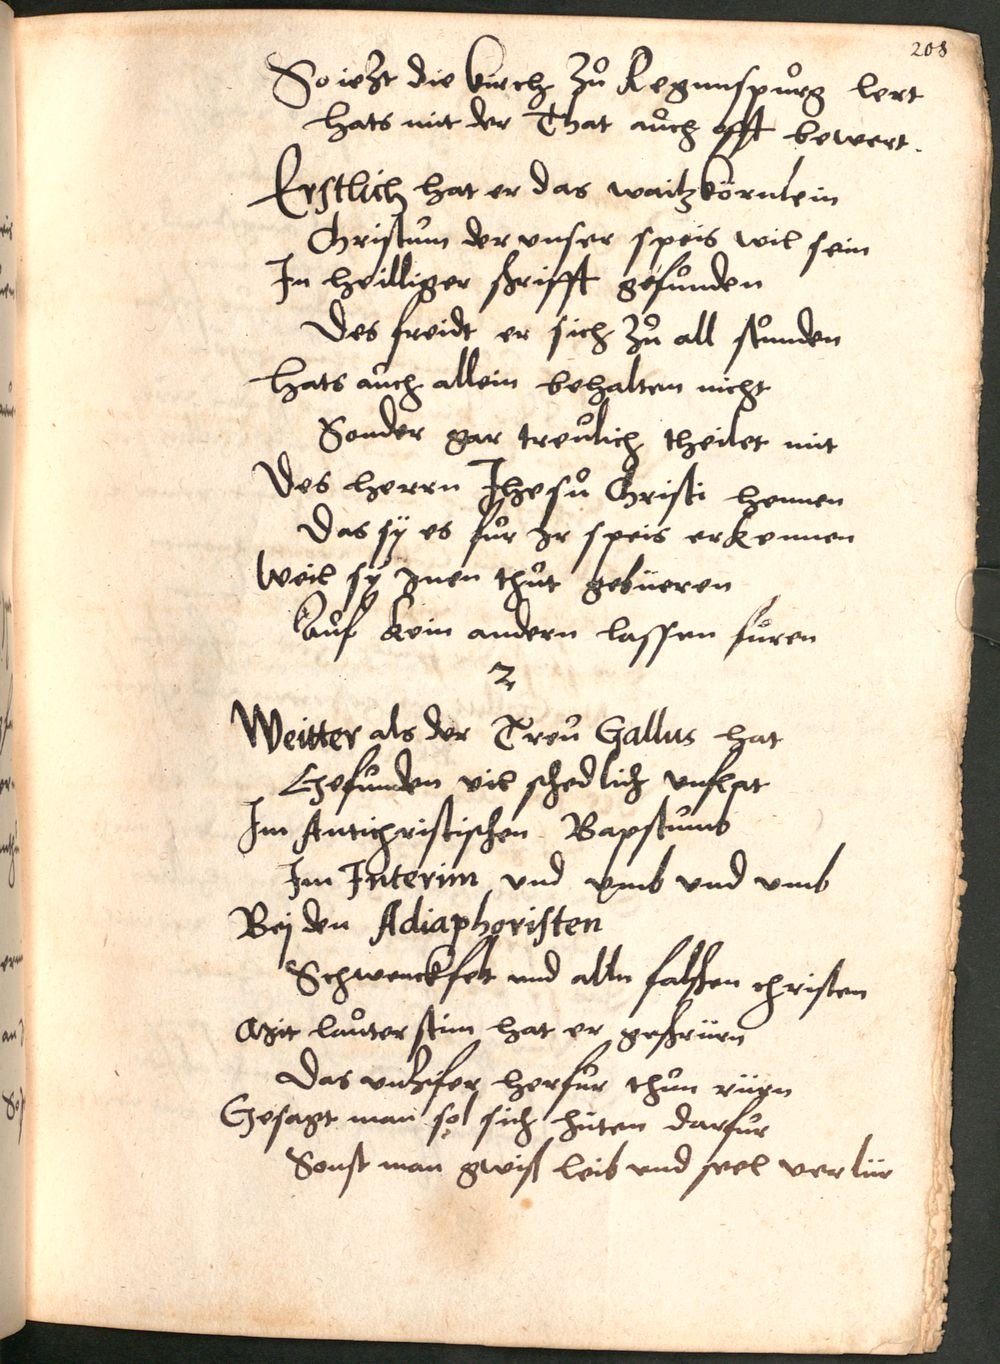 208
So iezt die kirch zů Regenspůrg lert
hats mit der That aůch offt bewert.
Erstlich hat er das waitzkörnlein
Christům der vnser speis wil sein
In heilliger schrifft gefůnden
Des freidt er sich zů all stůnden
hats aůch allein behalten nicht
Sonder gar treůlich theilet mit
Des herrn Jhesů Christi hennen
Das sÿ es fůr Ir speis erkennen
Weil sÿ Inen thůt gebüeren
Aůf kein andern lassen fůren
2
Weitter als der Treů Gallus hat
Gefůnden vil schedlich vnflat
Im Antichristischen Bapstumb
Im Interim vnd vmb vnd vmb
Bej den Adiaphoristen
Schwenckfelt vnd alln falschen christen
Mit laůter stim hat er geschrürn
Das vnzifer herfůr thůn rürn
Gesagt man sol sich hüten darfůr
Sonst man gwiß leib vnd seel verlür